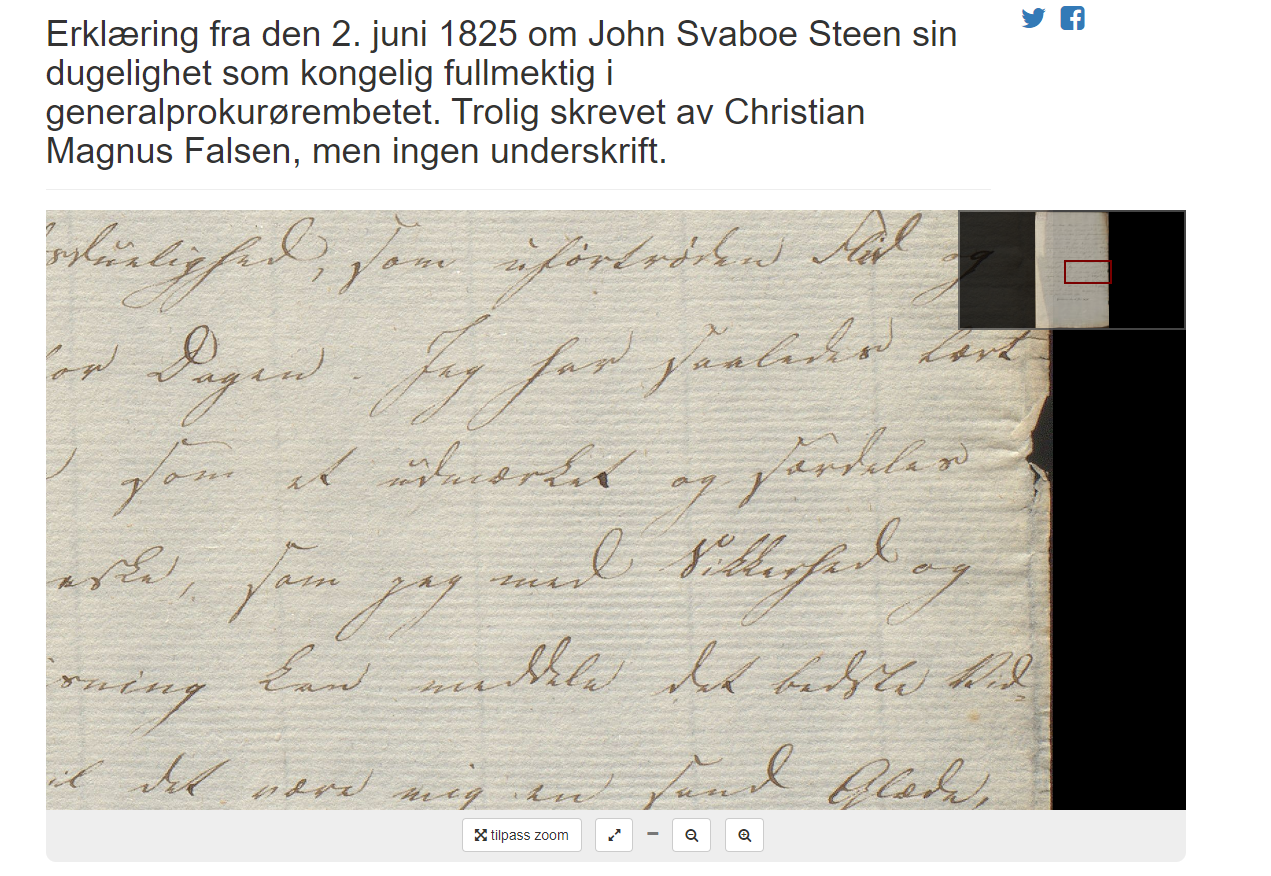 Erklæring fra den 2. juni 1825 om John Svaboe Steen sin
dugelighet som kongelig fullmektig i
generalprokurørembetet. Trolig skrevet av Christian
Magnus Falsen, men ingen underskrift.
duelighed, som ufortrøden Flid og
Dagen. Jeg har saaledes lært
som et udmærket og særdeles
eske, som jeg med Sikkerhed og
isning kan meddele det bedste Vid-
det være mig en sand Glæde,
tilpass zoom